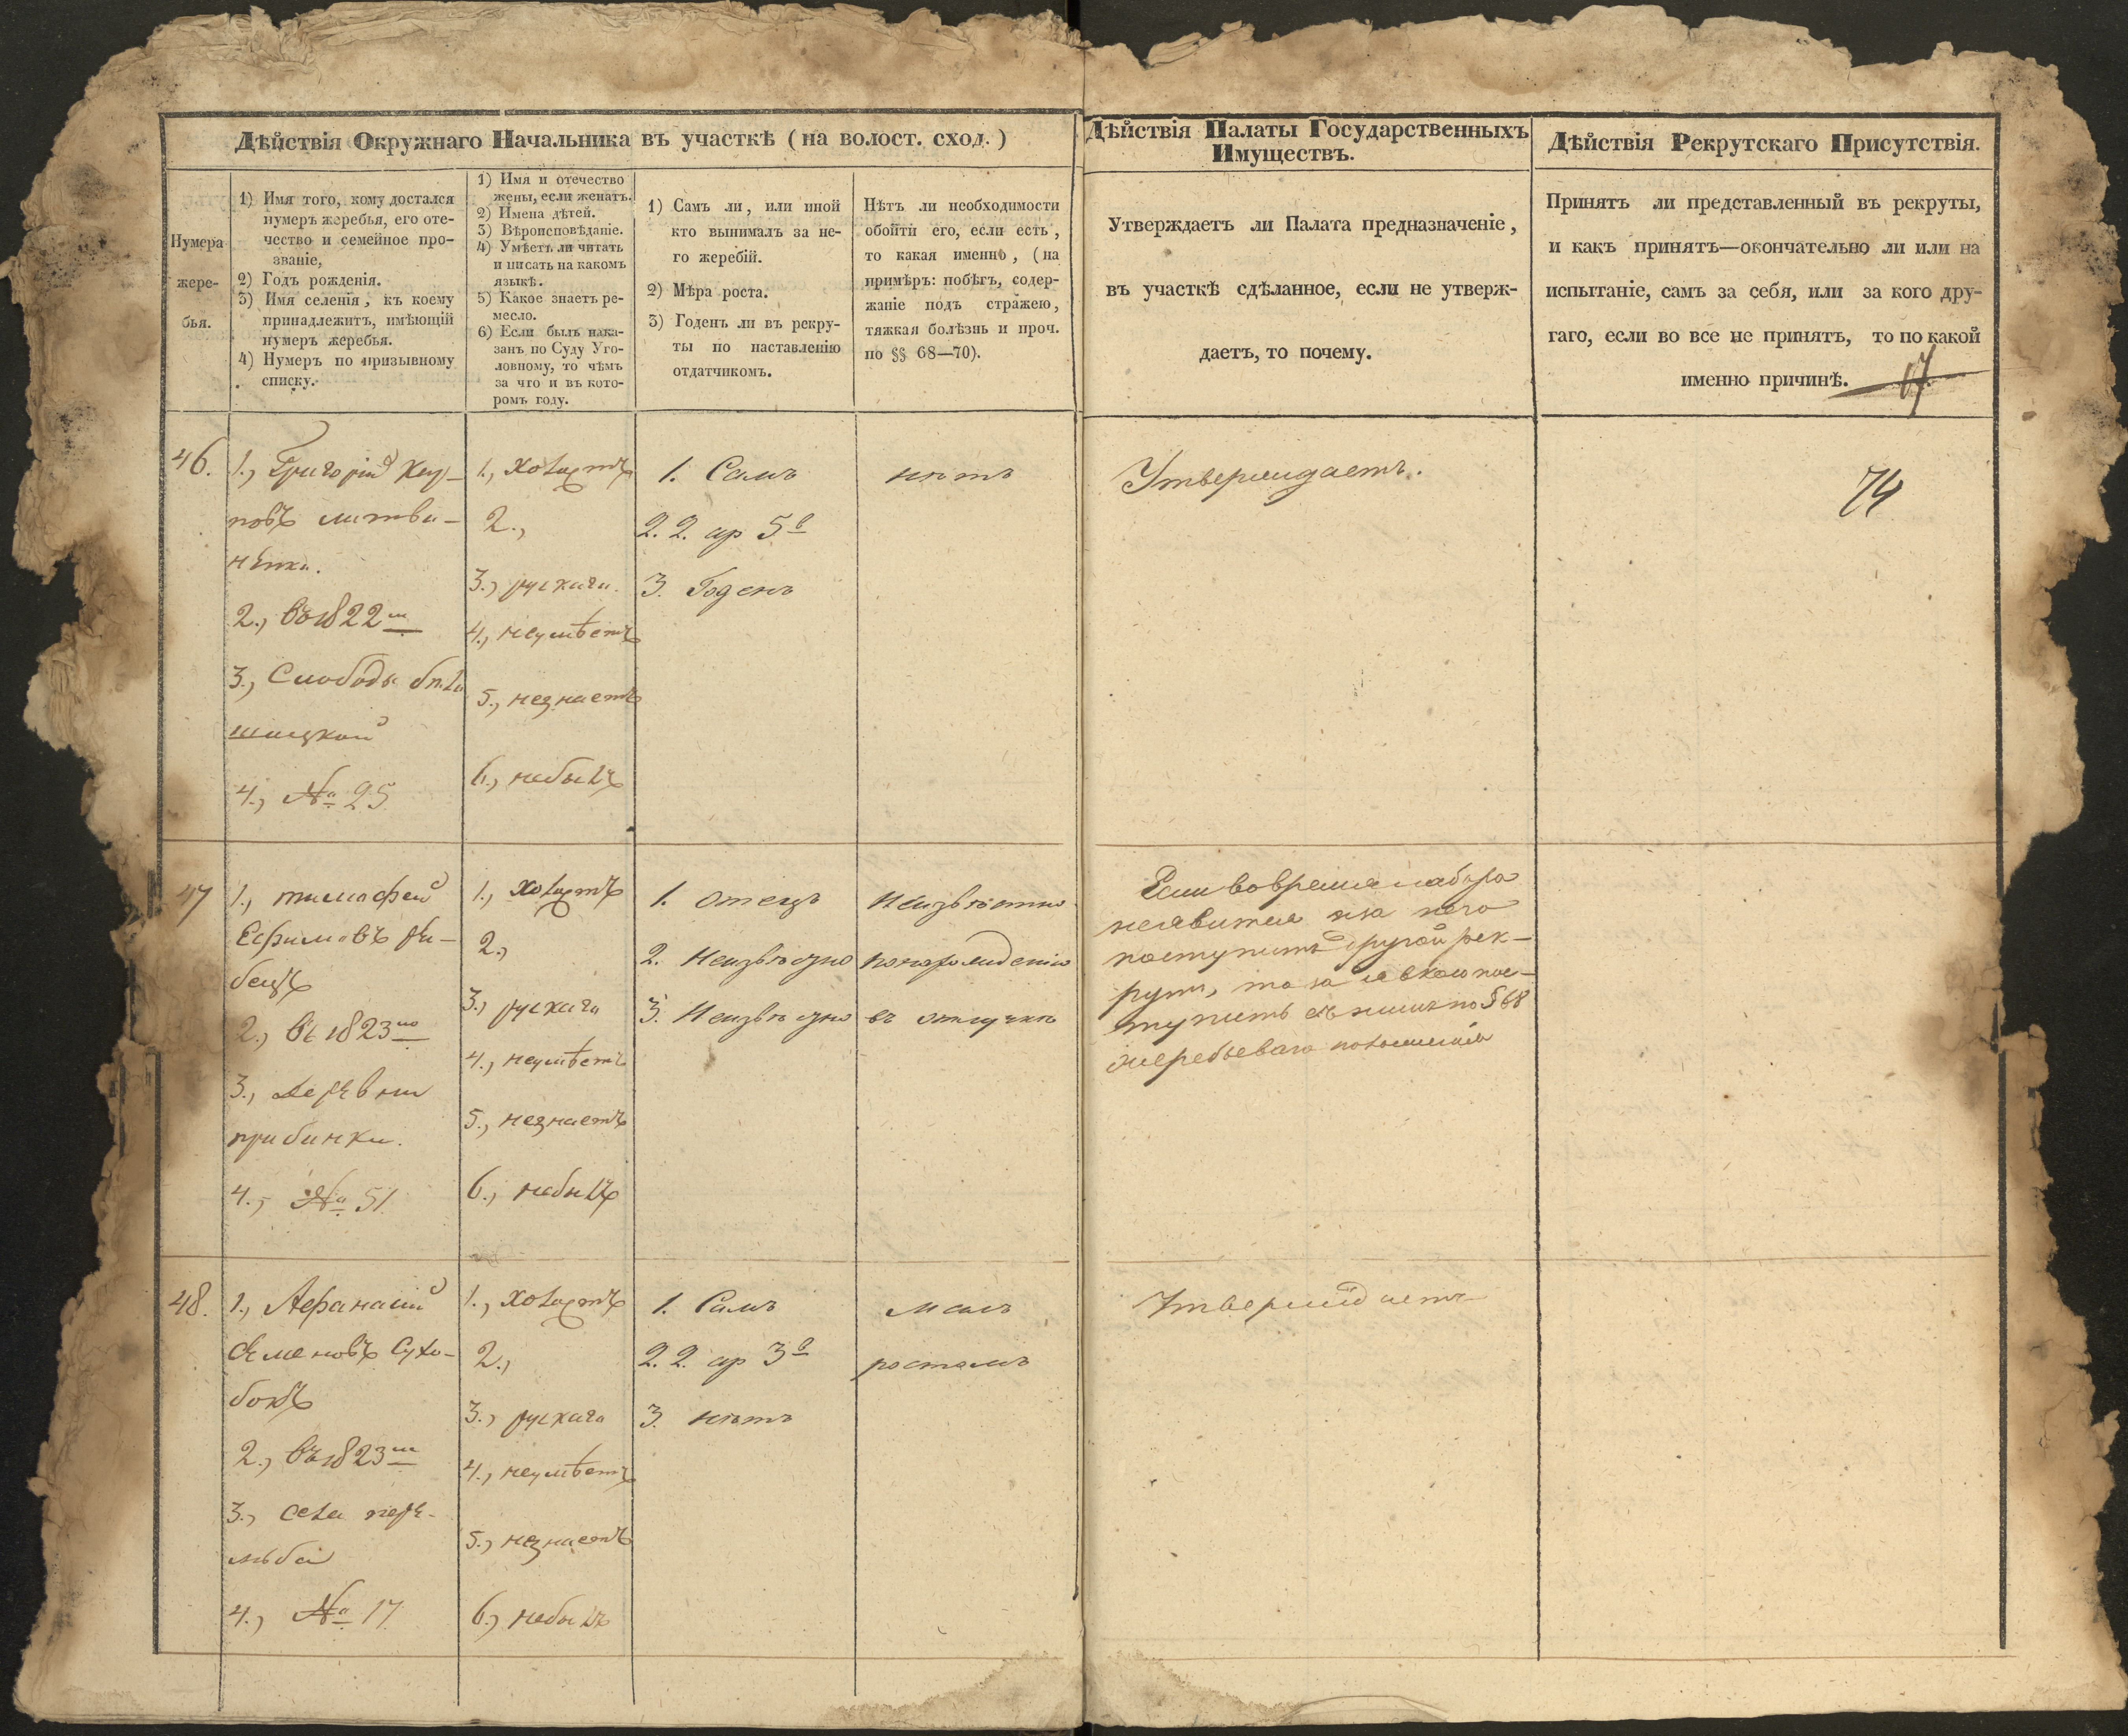 Дѣйствія Окружнаго Начальника въ участкѣ (на волост. сход.)
Нумера
жере-
бья.
1) Имя того, кому достался
нумеръ жеребья, его оте-
чество и семейное про-
званіе,
2) Годъ рожденія.
3) Имя селенія, къ коему
принадлежитъ, имѣющій
нумеръ жеребья.
4) Нумеръ по призывному
списку.
1) Имя и отечество
жены, если женатъ.
2) Имена дѣтей.
3) Вѣроисповѣданіе.
4) Умѣетъ ли читать
и писать на какомъ
языкѣ.
5) Какое знаетъ ре-
месло.
6) Если былъ нака-
занъ по Суду Уго-
ловному, то чѣмъ
за что и въ кото-
ромъ году.
1) Самъ ли, или иной
кто вынималъ за не-
го жеребій.
2) Мѣра роста.
3) Годенъ ли въ рекру-
ты по наставленію
отдатчикомъ.
Нѣтъ ли необходимости
обойти его, если есть,
то какая именно, (на
примѣръ: побѣгъ, содер-
жаніе подъ стражею,
тяжкая болѣзнь и проч.
по §§ 68—70).
Дѣйствія Палаты Государственныхъ
Имуществъ.
Утверждаетъ ли Палата предназначеніе,
въ участкѣ сдѣланное, если не утверж-
даетъ, то почему.
Дѣйствія Рекрутскаго Присутствія.
Принятъ ли представленный въ рекруты,
и какъ принятъ—окончательно ли или на
испытаніе, самъ за себя, или за кого дру-
гаго, если во все не принятъ, то по какой
именно причинѣ.
74
46.
1., Григорій
литви-
ненки.
2., въ 1822
3., Слободы
4., № 25
1., холостъ
2.,
3., рускаго
4., неумѣетъ
5., незнаетъ
6., небылъ
1. Самъ
2. 2 ар 5 в
3. Годенъ
нѣтъ
Утверждаетъ.
47
1., тимофей
Ефимовъ ры-
бецъ
2., въ 1823
3., деревни
прибинки.
4., № 51
1., холостъ
2.,
3., рускаго
4., неумѣетъ
5., незнаетъ
6., небылъ
1. отецъ
2. Неизвѣсно
3. Неизвѣсно
Неизвѣстно
по нарождению
въ отлучкѣ
Если во время набора
неявится и за него
поступитъ другой рек-
рутъ, то за
тупить съ нимъ по § 68
жеребьеваго положенія
48.
1., Афанасий
Семеновъ Сухо-
бокъ
2., въ 1823
3., села
4., № 17
1., холостъ
2.,
3., рускаго
4., неумѣетъ
5., незнаетъ
6., небылъ
1. Самъ
2. 2 ар 3 в
3. нѣтъ
малъ
ростомъ
Утверждаетъ